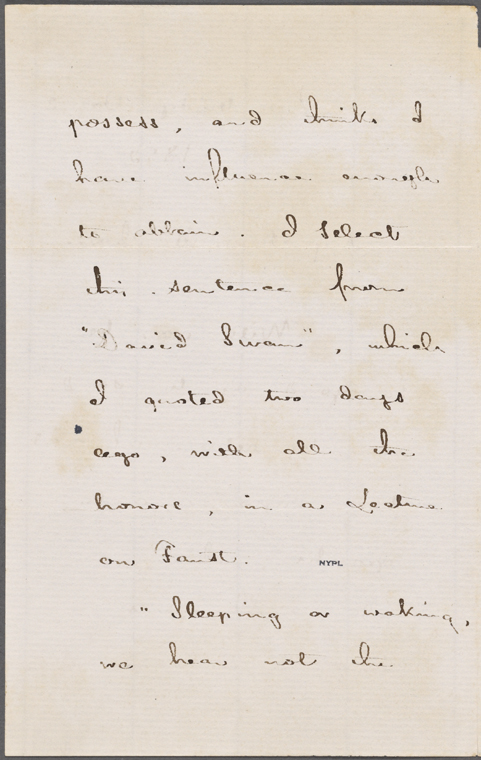 possess, and thinks I
have influence enough
to obtain. I select
this sentence from
"David Swan", which
I quoted two days
ago, with all the
honors, in a Lecture
on Faust.
NYPL
"Sleeping or waking,
we hear not the